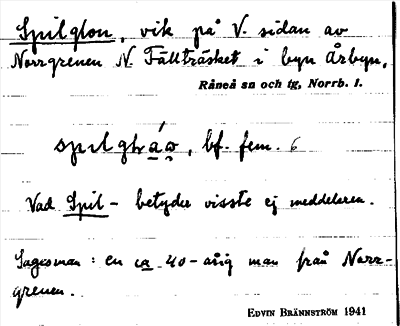 Spilglon, vik på V. sidan av
Norrgrenen N. Fällträsket i byn Årbyn,
Råneå sn och tg, Norrb. l.
bf. fem. 6
Vad Spil- betyder visste ej meddelaren.
Sagesman: en ca 40-årig man från Norr-
grenen.
EDVIN BRÄNNSTRÖM 1941